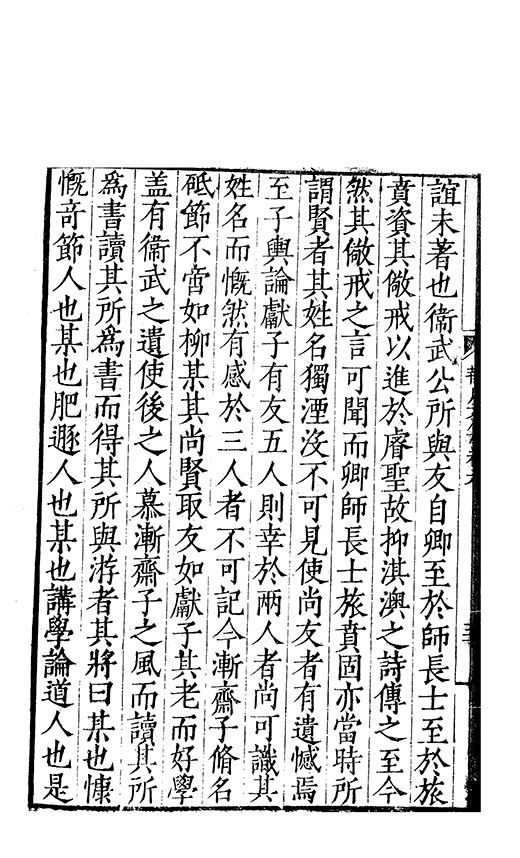 誼未著也衞武公所與友自卿至於師長士至於旅
賁資其儆戒以進於睿聖故抑淇澳之詩傳之至今
然其儆戒之言可聞而卿師長士旅賁固亦當時所
謂賢者其姓名獨湮沒不可見使尚友者有遺憾焉
至子輿論獻子有友五人則幸於兩人者尚可識其
姓名而慨然有感於三人者不可記今漸齋子脩名
砥節不啻如柳某其尚賢取友如獻子其老而好學
盖有衞武之遺使後之人慕漸齋子之風而讀其所
爲書讀其所爲書而得其所與游者其將曰某也慷
慨奇節人也某也肥遯人也某也講學論道人也是